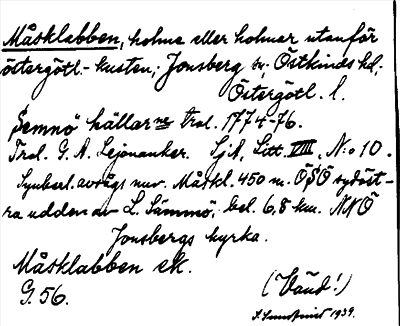 Måsklabben, holme eller holmar utanför
östergötl.-kusten, Jonsberg sn, Östkinds hd,
Östergötl. l.
Semnö hällar ne trol. 1774-76.
Trol. G. A. Lejonanker. SjA, Litt. VIII, N:o 10.
Synberl. avsågs nuv. Måskl. 450 m. ÖSÖ sydöst-
ra udden av L. Sämmö, bel. 6,8 km. NNÖ
Jonsbergs kyrka.
Måsklabben ek.
G. 56.
(Vänd!)
1939.